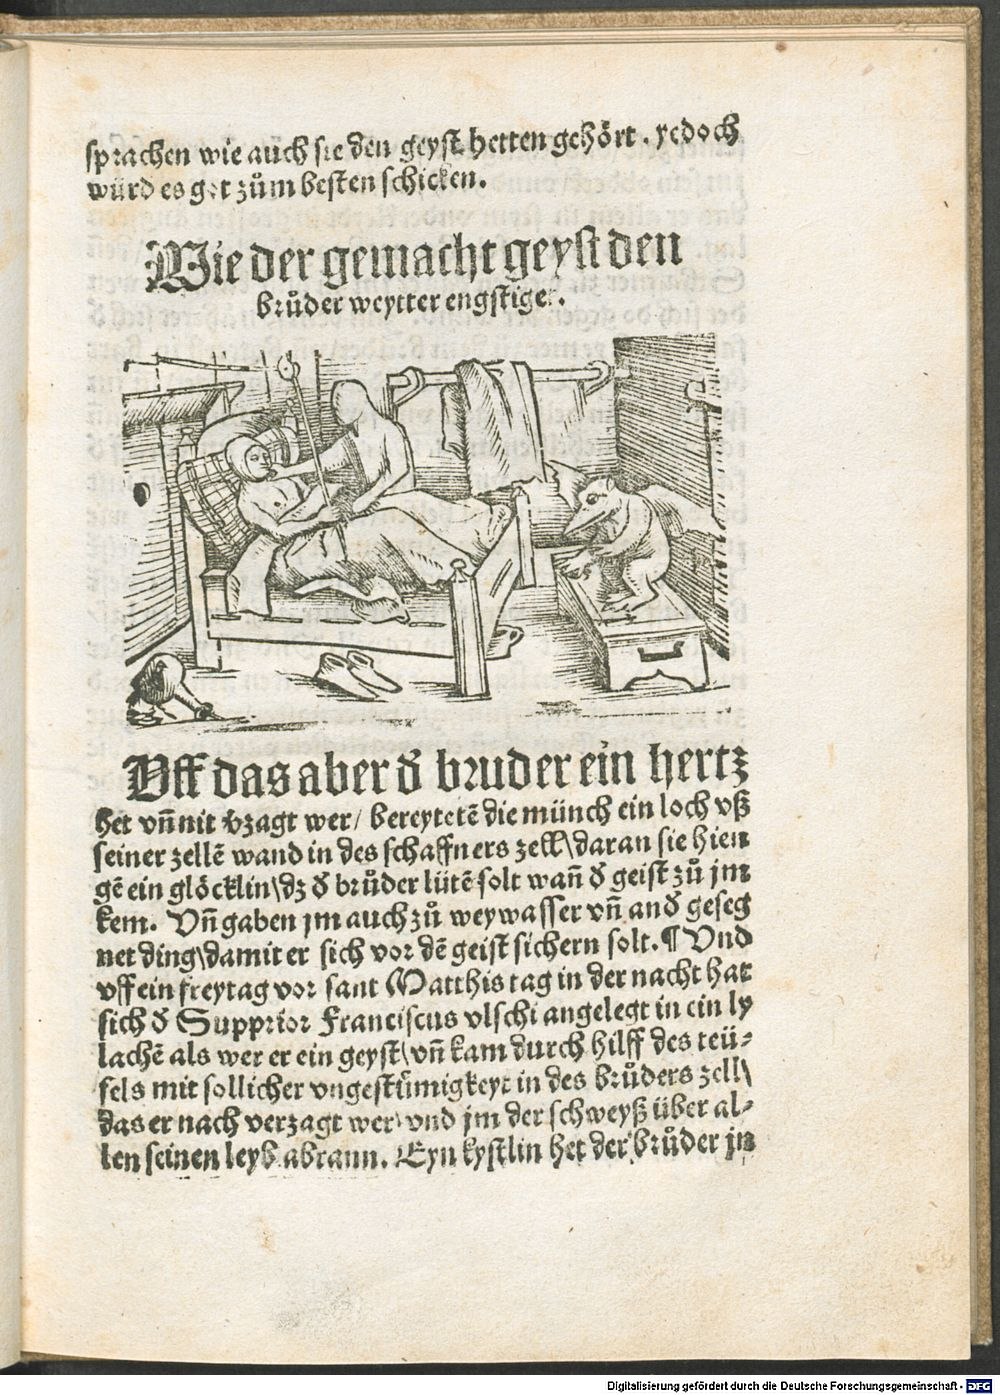 sprachen wie auch sie den geyst hetten gehört. yedoch
würd es got zům besten schicken.
Wie der gemacht geyst den
brůder weytter engstiget.
Vff das aber d̄ bruder ein hertz
het vn̄ nit v̄zagt wer/ bereytetē die münch ein loch vß
seiner zellē wand in des schaffners zell\daran sie hien
gē ein glöcklin\dz d̄ brůder lütē solt wan̄ d̄ geist zů jm
kem. Vn̄ gaben jm auch zů weywasser vn̄ and̄ geseg
net ding\damit er sich vor dē geist sichern solt.¶ Vnd
vff ein freytag vor sant Matthis tag in der nacht hat
sich d̄ Supprior Franciscus vlschi angelegt in ein ly
lachē als wer er ein geyst\vn̄ kam durch hilff des teü⸗
fels mit sollicher vngestümigkeyt in des brůders zell\
das er nach verzagt wer\vnd jm der schweyß über al⸗
len seinen leyb abrann. Eyn kystlin het der brůder jn
Digitalisierung gefördert durch die Deutsche Forschungsgemeinschaft - DFG